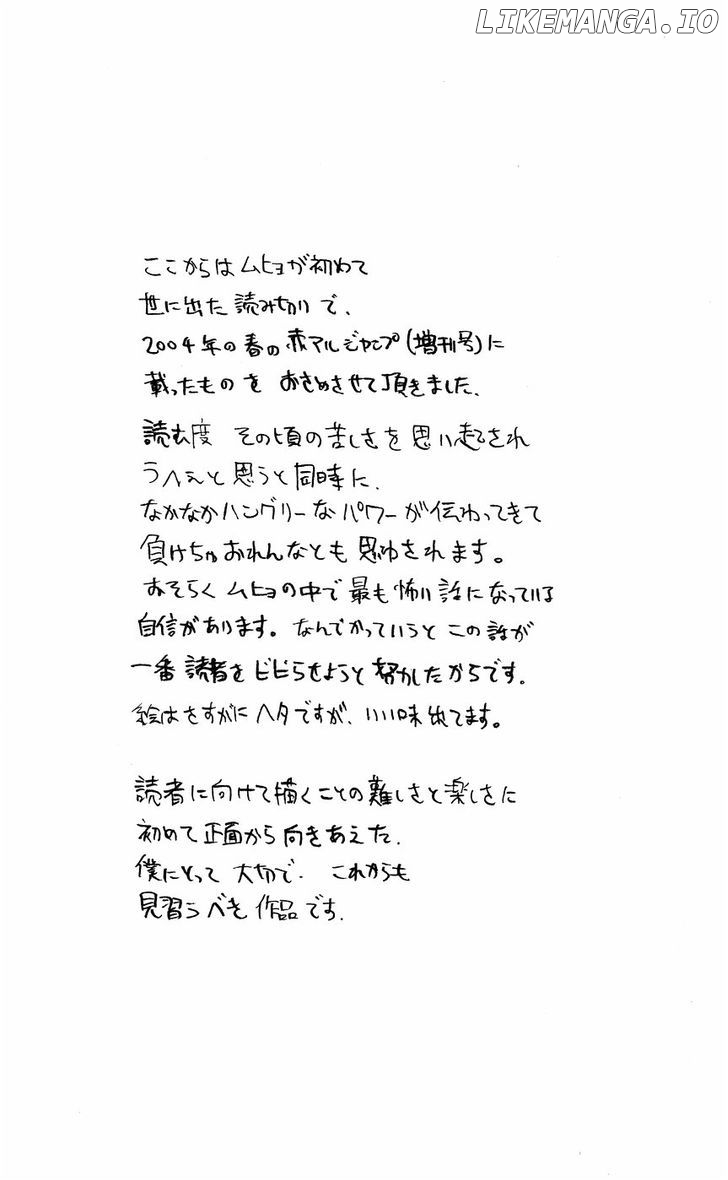 LIKEMANGA.IO
ここからはムヒョが初めて
世に出た読み切りで、
2004年の春の赤マルジャンプ(増刊号)に
載ったものを おさめさせて頂きました.
読む度 その頃の苦しさを思い起こされ
うへぇと思うと同時に、
なかなかハングリーなパワーが伝わってきて
負けちゃおれんなとも思わされます。
おそらくムヒョの中で最も怖い話になっている
自信があります。なんでかっていうとこの話が
一番読者をビビらせようと努力したからです.
絵はさすがにヘタですが、いい味出てます。
読者に向けて描くことの難しさと楽しさに
初めて正面から向きあえた.
僕にとって大切で. これからも
見習うべき作品です.